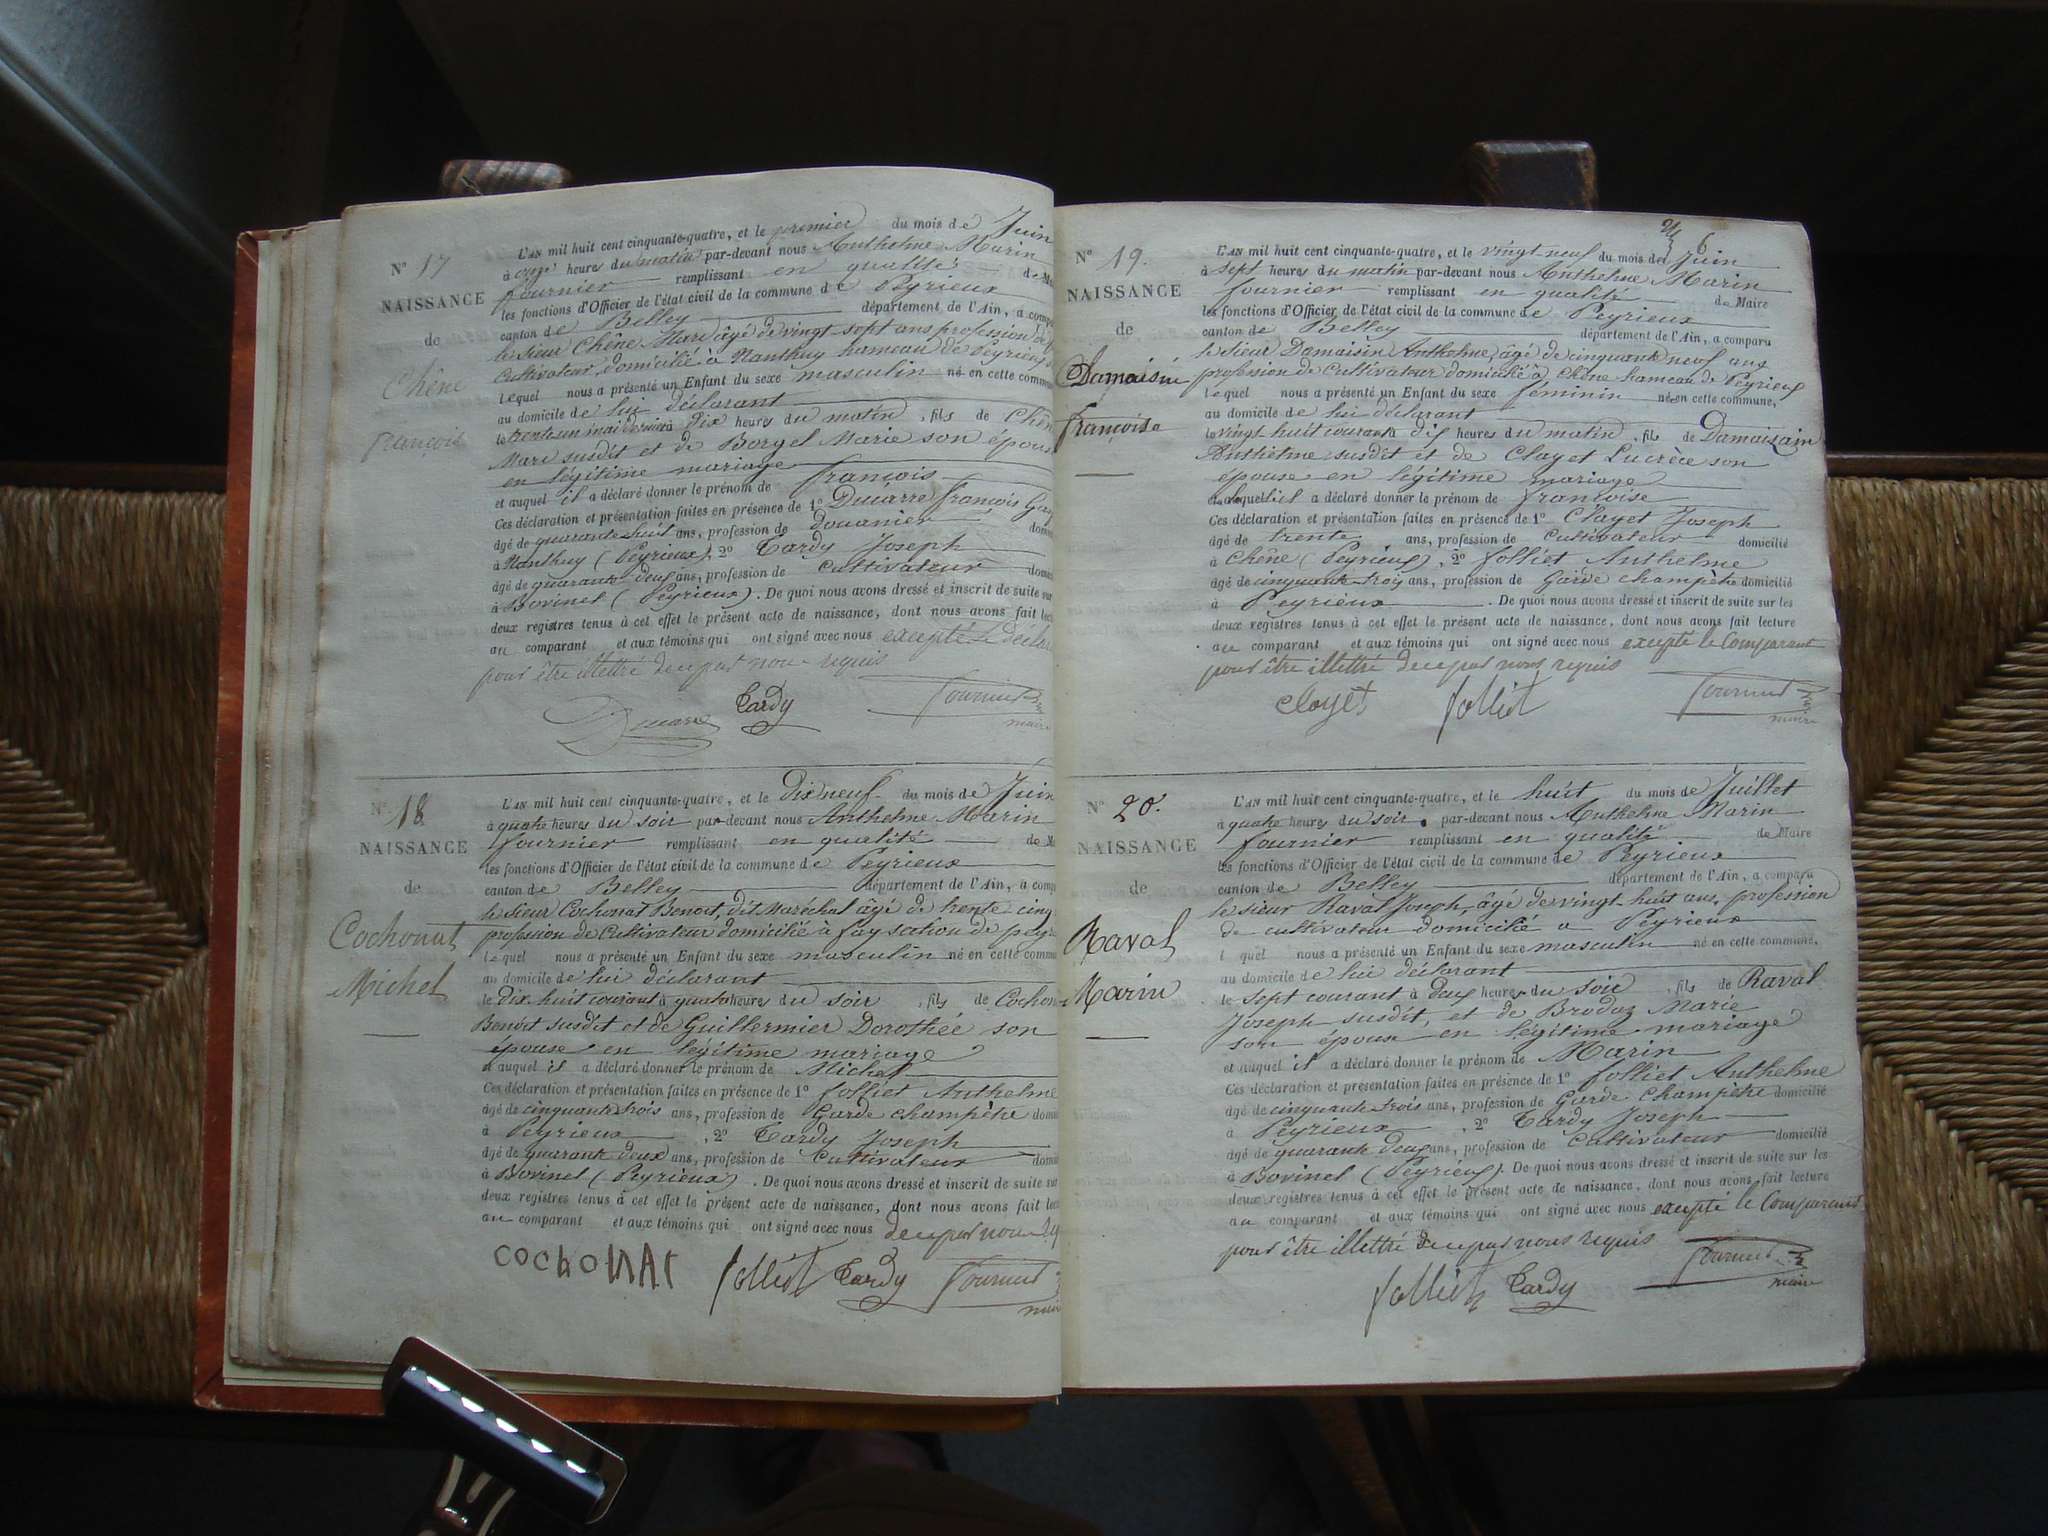 N° 17
NAISSANCE
de
Chêne
François
L'AN mil huit cent cinquante-quatre, et le premier du mois de Juin
à onze heures du matin par-devant nous Anthelme Marin
fournier remplissant en qualité de
les fonctions d'Officier de l'état civil de la commune de Peyrieux
canton de Belley département de l'Ain, a comp
le sieur Chêne Marc âgé de vingt sept ans profession de
Cultivateur, domicilié à Nanthuy hameau de Peyrieux
lequel nous a présenté un Enfant du sexe masculin né en cette commun
au domicile de lui déclarant
le trente un mai dernier à dix heures du matin, fils de Chêne
Marc susdit et de Borgel Marie son épouse
en légitime mariage
et auquel il a déclaré donner le prénom de françois
Ces déclaration et présentation faites en présence de 1° françois
âgé de quarante huit ans, profession de douanier domi
à Nanthuy (Peyrieux), 2° Tardy Joseph
âgé de quarante deux ans, profession de cultivateur domi
à Bovinel (Peyrieux). De quoi nous avons dressé et inscrit de suite sur
deux registres tenus à cet effet le présent acte de naissance, dont nous avons fait lect
au comparant et aux témoins qui ont signé avec nous excepté le déclar
pour être illettré de ce par nous requis
Tardy
fournier
maire
N° 18
NAISSANCE
de
Cochonat
Michel
L'AN mil huit cent cinquante-quatre, et le dix neuf du mois de Juin
à quatre heures du soir par-devant nous Anthelme Marin
fournier remplissant en qualité de M
les fonctions d'Officier de l'état civil de la commune de Peyrieux
canton de Belley département de l'Ain, a comp
le sieur Cochonat Benoit, dit Maréchal âgé de trente cinq
profession de Cultivateur domicilié à fay section de peyr
lequel nous a présenté un Enfant du sexe masculin né en cette commu
au domicile de lui déclarant
le dix huit courant à quatre heures du soir, fils de Cochon
Benoit susdit et de Guillermier Dorothée son
épouse en légitime mariage
et auquel il a déclaré donner le prénom de Michel
Ces déclaration et présentation faites en présence de 1° folliet Anthelme
âgé de cinquante trois ans, profession de Garde champêtre domi
à Peyrieux, 2° Tardy Joseph
âgé de quarante deux ans, profession de cultivateur domi
à Bovinel (Peyrieux). De quoi nous avons dressé et inscrit de suite sur
deux registres tenus à cet effet le présent acte de naissance, dont nous avons fait lec
au comparant et aux témoins qui ont signé avec nous de ce par nous
COCHONAT folliet Tardy fournier
maire
6
N° 19.
NAISSANCE
de
Damaisin
françoise
L'AN mil huit cent cinquante-quatre, et le vingt neuf du mois de Juin
à sept heures du matin par-devant nous Anthelme Marin
fournier remplissant en qualité de Maire
les fonctions d'Officier de l'état civil de la commune de Peyrieux
canton de Belley département de l'Ain, a comparu
le sieur Damaisin Anthelme, âgé de cinquante neuf ans
profession de Cultivateur domicilié à Chêne hameau de Peyrieux
lequel nous a présenté un Enfant du sexe féminin né en cette commune,
au domicile de lui déclarant
le vingt huit courant à dix heures du matin, fils de Damaisain
Anthelme susdit et de Clayet Lucrèce son
épouse en légitime mariage
a déclaré donner le prénom de françoise
Ces déclaration et présentation faites en présence de 1° Clayet Joseph
âgé de trente ans, profession de Cultivateur domicilié
à Chêne (Peyrieux), 2° folliet Anthelme
âgé de cinquante trois ans, profession de Garde champêtre domicilié
à Peyrieux. De quoi nous avons dressé et inscrit de suite sur les
deux registres tenus à cet effet le présent acte de naissance, dont nous avons fait lecture
au comparant et aux témoins qui ont signé avec nous excepté le Comparant
pour être illettré de ce par nous requis
cloyet folliet fournier
maire
N° 20.
NAISSANCE
de
Raval
Marin
L'AN mil huit cent cinquante-quatre, et le huit du mois de Juillet
à quatre heures du soir, par-devant nous Anthelme Marin
fournier remplissant en qualité de Maire
les fonctions d'Officier de l'état civil de la commune de Peyrieux
canton de Belley département de l'Ain, a comparu
le sieur Raval Joseph, âgé de vingt huit ans, profession
de cultivateur domicilié à Peyrieux
l quel nous a présenté un Enfant du sexe masculin né en cette commune,
au domicile de lui déclarant
le sept courant à deux heures du soir, fils de Raval
Joseph susdit, et de Broduz Marie
son épouse en légitime mariage
et auquel il a déclaré donner le prénom de Marin
Ces déclaration et présentation faites en présence de 1° folliet Anthelme
âgé de cinquante trois ans, profession de Garde Champêtre domicilié
à Peyrieux, 2° Tardy Joseph
âgé de quarante deux ans, profession de Cultivateur domicilié
à Bovinel (Peyrieux). De quoi nous avons dressé et inscrit de suite sur les
deux registres tenus à cet effet le présent acte de naissance, dont nous avons fait lecture
au comparant et aux témoins qui ont signé avec nous excepté le Comparant
pour être illettré de ce par nous requis
folliet Tardy fournier
maire